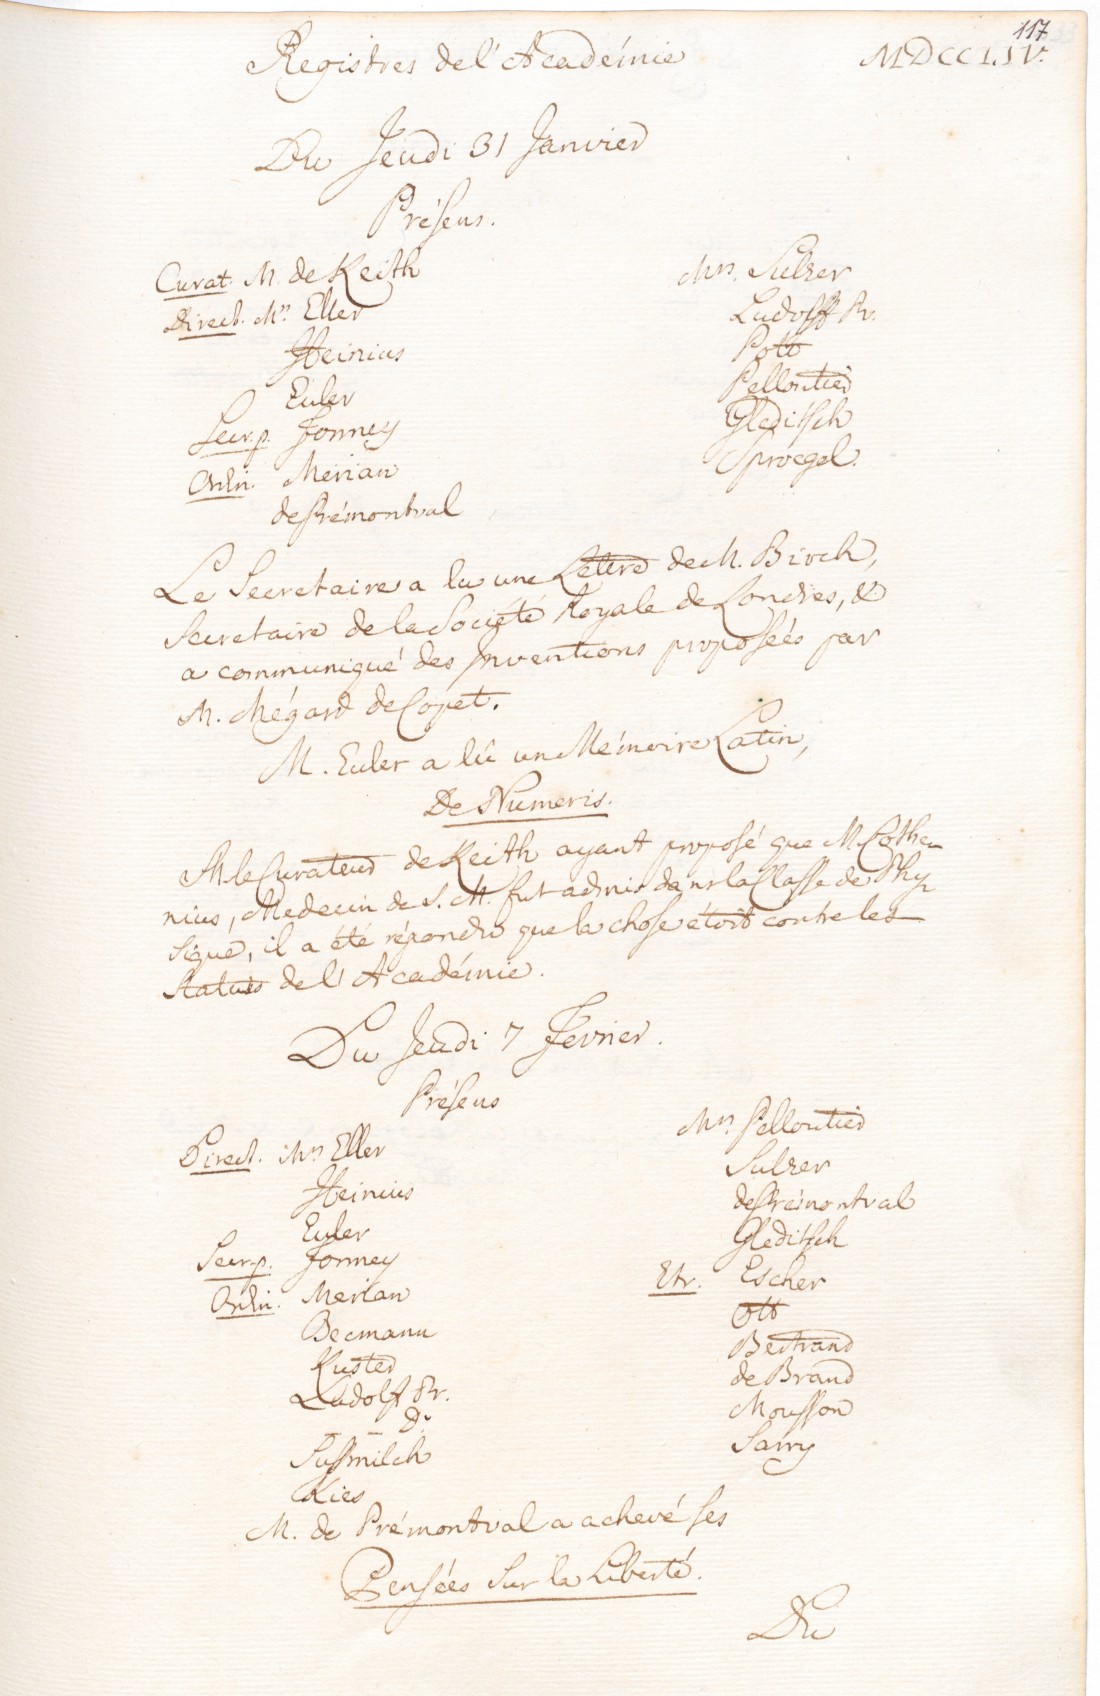 117.
Registres de l'Académie
MDCCLIV.
Du Jeudi 31 Janvier
Présens.
Curat. M. de Keith
Direct. Mrs Eller
Heinius
Euler
Secr. p. Formey
Ordin. Merian
de Prémontval
Mrs. Sulzer
Ludolff Pr.
Pott
Pelloutier
Gleditsch
Sproegel.
Le Secretaire a lu une Lettre de M. Birch,
Secretaire de la Société Royale de Londres, &
a communiqué des Inventions proposées par
M. Mégard de Copet.
M. Euler a lû un Mémoire Latin,
De Numeris.
M. le Curateur de Keith ayant proposé que M. Cothe-
nius, Medecin de S. M. fut admis dans la Classe de Phy-
sique, il a été répondu que la chose étoit contre les
Statuts de l'Académie.
Du Jeudi 7 Fevrier.
Présens
Direct. Mrs Eller
Heinius
Euler
Secr. p. Formey
Ordin. Merian
Becmann
Kuster
Ludolff Pr.
_ _ Dr
Sussmilch
Kies
Mrs. Pelloutier
Sulzer
de Prémontval
Gleditsch
Etr. Escher
Ott
Bertrand
de Brand
Mousson
M. de Prémontval a achevé ses
Pensées sur la Liberté.
Du